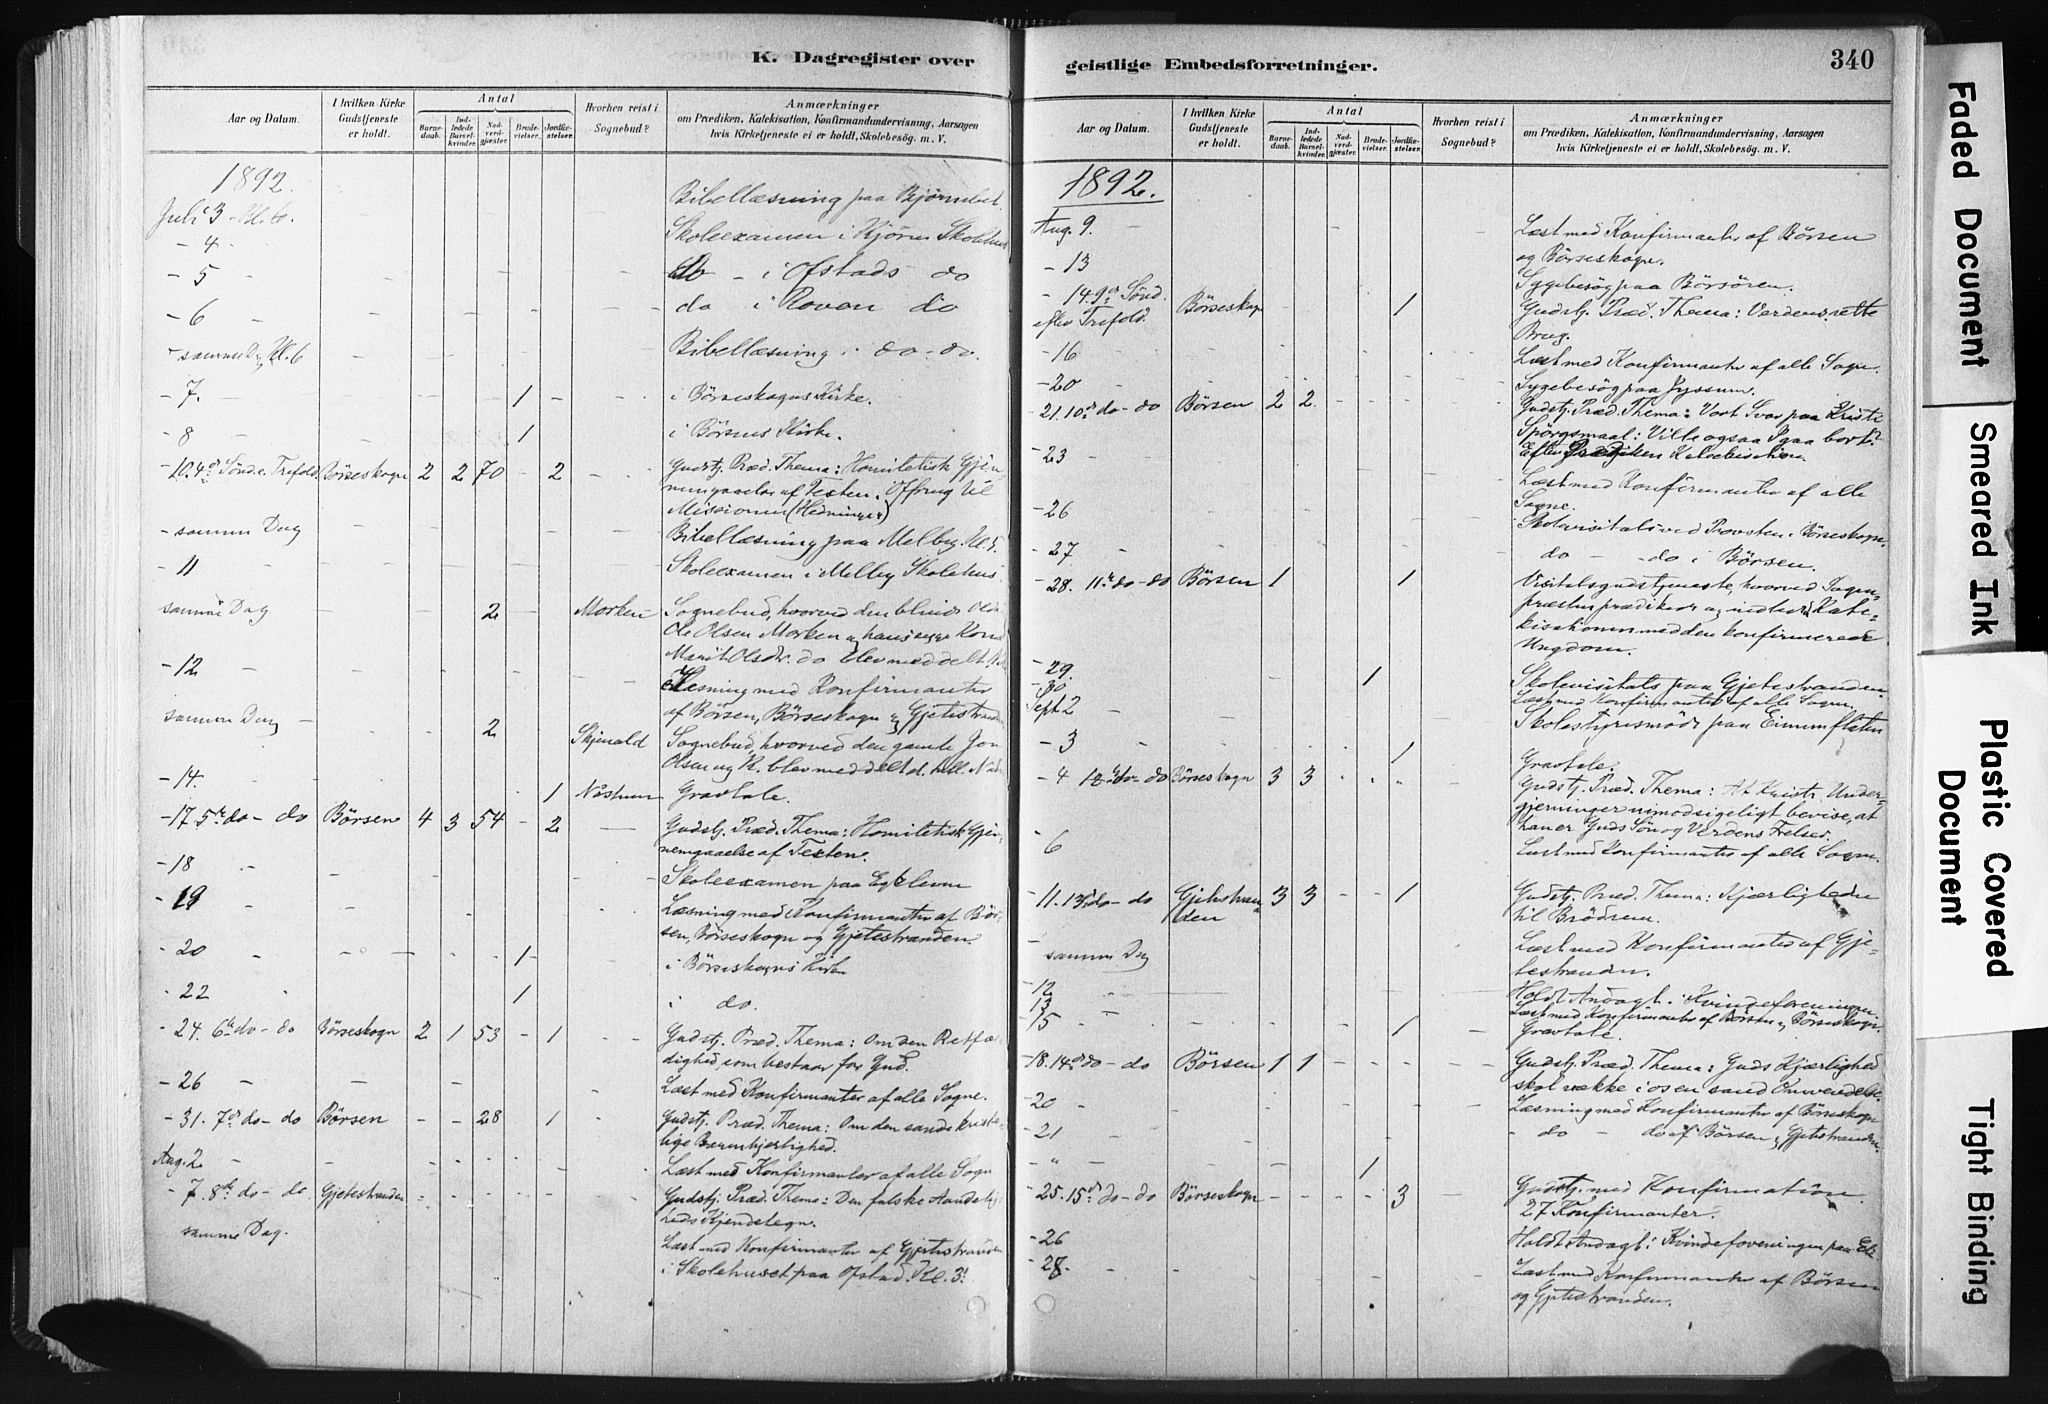 K. Dagregister over
Aar og Datum.
I hvilken Kirke Gudstjeneste er holdt.
Antal
Barne-daab.
Ind-ledede Barsel-kvinder.
Nad-verd-gjæster.
Brude-vielser.
Jordfæ-stelser.
Hvorhen reist i Sognebud?
Anmærkninger
om Prædiken, Katekisation, Konfirmandundervisning, Aarsagen
hvis Kirketjeneste ei er holdt, Skolebesög. m. V.
1892.
Juli 3 - Kl. 6. Bibellæsning paa
- 4 Skoleexamen i Skolehus
- 5 do - i Ofstads do
- 6 do i Rovon do
- samme Dag Kl. 6 Bibellæsning i do - do.
- 7. 1 i Börseskogns Kirke.
- 8 1 i Börsens Kirke.
- 10. 4de Sönd. e. Trefold. Börseskogn 2 2 70 - 2 Gudstj. Præd. Thema: Homiletisk Gjen-
nemgaaelse af Texten. Offring til
Missionen (Hedninger)
- samme Dag Bibellæsning paa Melby Kl. 5.
- 11 Skoleexamen i Melby Skolehus
samme Dag 2 Morken Sognebud, hvorved den blinde
Ole Olsen Morken og hans Kone
Marit Olsdr. do blev meddelt
- 12 Læsning med Konfirmanter
af Börsen, Börseskogn og Gjetestranden
samme Dag 2 Skjenald Sognebud, hvorved den gamle Jon
Olsen og K. blev meddelt d. hell. Nadv.
- 14. 1 Gravtale.
- 17 5te do - do Börsen 4 3 54 - 2 Gudstj. Præd. Thema: Homiletisk Gjen-
nemgaaelse af Texten.
- 18 Skoleexamen paa
- 19 Læsning med Konfirmanter af Bör-
sen, Börseskogn og Gjetestranden.
- 20 1 i Börseskogns Kirke
- 22 1 i do.
- 24. 6te do - do Börseskogn 2 1 53 - 1 Gudstj. Præd. Thema: Om den Retfær-
dighed, som bestaar for Gud.
- 26 Læst med Konfirmanter af alle Sogne.
- 31. 7de do - do Börsen - - 28 1 Gudstj. Præd. Thema: Om den sande kriste-
lige Barmhjertighed.
Aug. 2 Læst med Konfirmanter af alle Sogn
- 7. 8de do - do. Gjetestranden Gudstj. Præd. Thema: Den falske Aandelig-
heds Kjendetegn.
samme Dag. Læst med Konfirmanter af Gjetestranden
i Skolehuset paa Ofstad. Kl. 3.
geistlige Embedsforretninger.
340
Aar og Datum.
I hvilken Kirke Gudstjeneste er holdt.
Antal
Barne-daab.
Ind-ledede Barsel-kvinder.
Nad-verd-gjæster.
Brude-vielser.
Jordfæ-stelser.
Hvorhen reist i Sognebud?
Anmærkninger
om Prædiken, Katekisation, Konfirmandundervisning, Aarsagen
hvis Kirketjeneste ei er holdt, Skolebesög. m. V.
1892.
Aug. 9. Læst med Konfirmanter af Börsen
og Börseskogn.
- 13 Sygebesög paa Börsören.
- 14. 9de Sönd. efter Trefold. Börseskogn 1 Gudstj. Præd. Thema: Verdens rette
Brug.
- 16 Læst med Konfirmanter af alle Sogne.
- 20 Sygebesög paa
21. 10de do - do Börsen 2 2 Gudstj. Præd. Thema: Vort Svar paa Kristi
Spörgsmaal: Ville ogsaa I gaa bort?
Efter Prædiken Katekisation.
- 23 Læst med Konfirmanter af alle
Sogne.
- 26 Skolevisitats ved Provsten i Börseskogn.
- 27 do - do i Börsen.
- 28. 11te do - do Börsen 1 1 Visitatsgudstjeneste, hvorved Sogne-
præsten prædikede og Kate-
kisationen med den konfirmerede
Ungdom.
- 29 1 Skolevisitats paa Gjetestranden.
- 30 Læst med Konfirmanter af alle Sogne.
Sept. 2 Skolestyresmöde paa
- 3 1 Gravtale.
- 4 12te do - do Börseskogn 3 3 Gudstj. Præd. Thema: At Kristi Under-
gjerninger uimodsigeligt bevise, at
han er Guds Sön og Verdens Frelser.
- 6 Læst med Konfirmanter af alle Sogne.
- 11. 13de do - do Gjetestran-
den 3 3 - - 1 Gudstj. Præd. Thema: Kjærligheden
til Brödrene.
samme Dag Læst med Konfirmanter af Gje-
testranden.
- 12 Holdt Andagt i Kvindeforeningen.
- 13 Læst med Konfirmanter af Börsen og Börseskogn.
- 15 1 Gravtale.
- 18. 14de do - do Börsen 1 1 Gudstj. Præd. Thema: Guds Kjærlighed
skal vække i os en sand Omvendelse.
- 20 Læsning med Konfirmanter af Börseskogn
- 21 - do - do af Börsen og Gjetestranden.
- " - 1
- 25. 15de do - do Börseskogn - - - - 3 Gudstj. med Konfirmation.
27 Konfirmanter.
- 26 Holdt Andagt i Kvindeforeningen paa
- 28. Læst med Konfirmanter af Börsen
og Gjetestranden.
Faded Document Smeared Ink
Plastic Covered
Document
Tight Binding